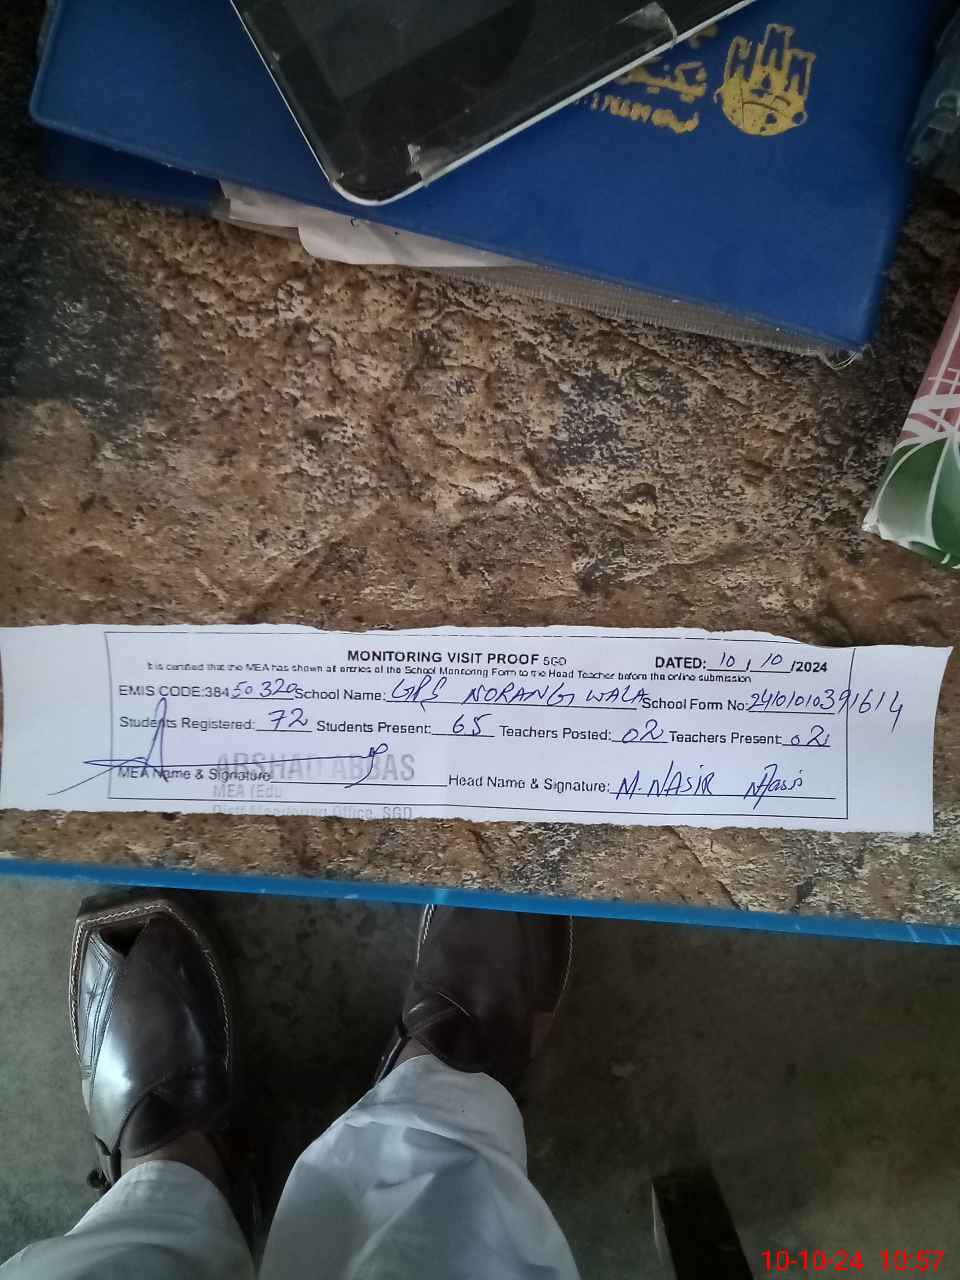 ٹیکنیکل
MONITORING VISIT PROOF SGD DATED: 10 / 10 /2024
It is certified that the MEA has shown all entries of the School Monitoring Form to the Head Teacher before the online submission
EMIS CODE:38450320 School Name: GPS NORANG WALA School Form No: 24101010391614
Students Registered: 72 Students Present: 65 Teachers Posted: 02 Teachers Present: 02
ARSHAD ABBAS
MEA Name & Signature Head Name & Signature: M. NASIR Nasir
MEA (Edu
Distt Monitoring Office, SGD
10-10-24 10:57